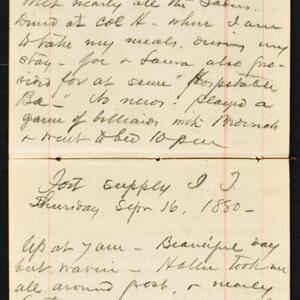 met nearly all the
Dined at Col H - where I am
to take my meals, during my
stay - Joe & Laura also pro-
vided for at same "Hospitable
No news! Played a
game of billiards with
& went to bed 10 p m
Fort Supply I. T.
Thursday Sept 16, 1880 -
Up at 7 am - Beautiful day
but warm - took me
all around post, & nearly